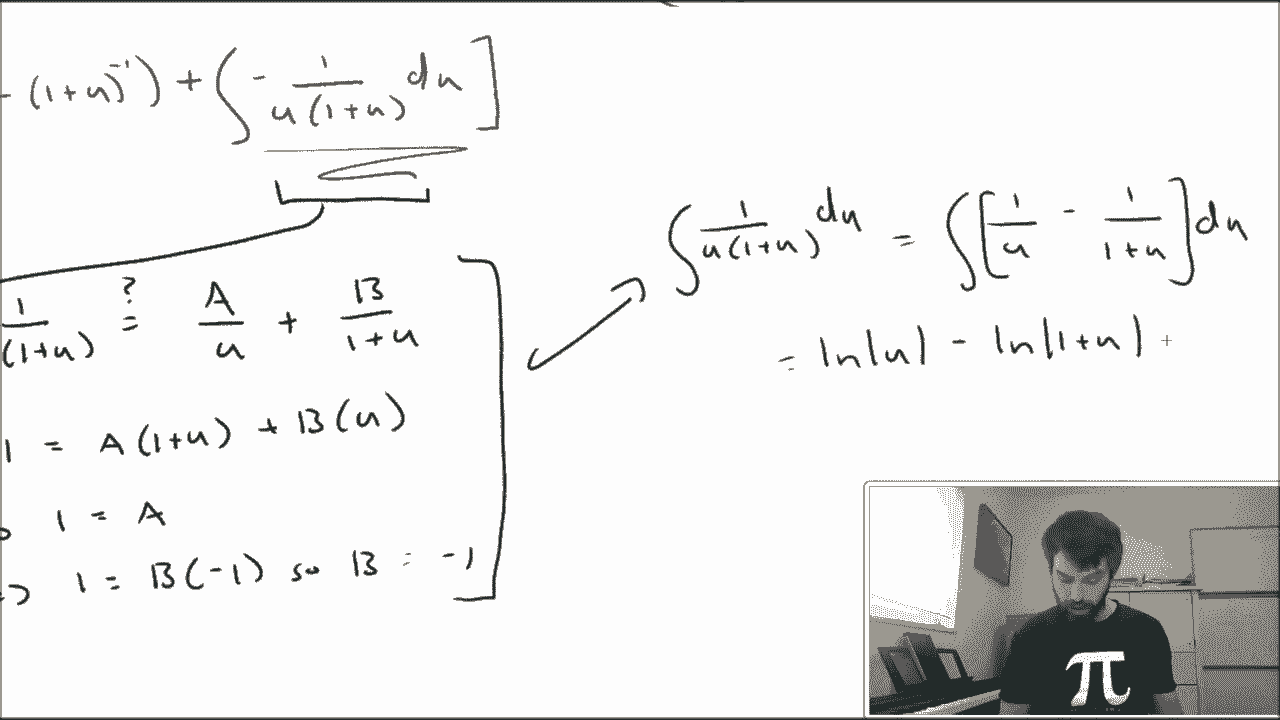 - (1+u)^-1) + ∫ - 1/(u(1+u)) du ]
1/(1+u)) ?= A/u + B/(1+u)
1 = A(1+u) + B(u)
1 = A
1 = B(-1) so B = -1
∫ 1/(u(1+u)) du = ∫ [1/u - 1/(1+u)] du
= ln|u| - ln|1+u| +
π